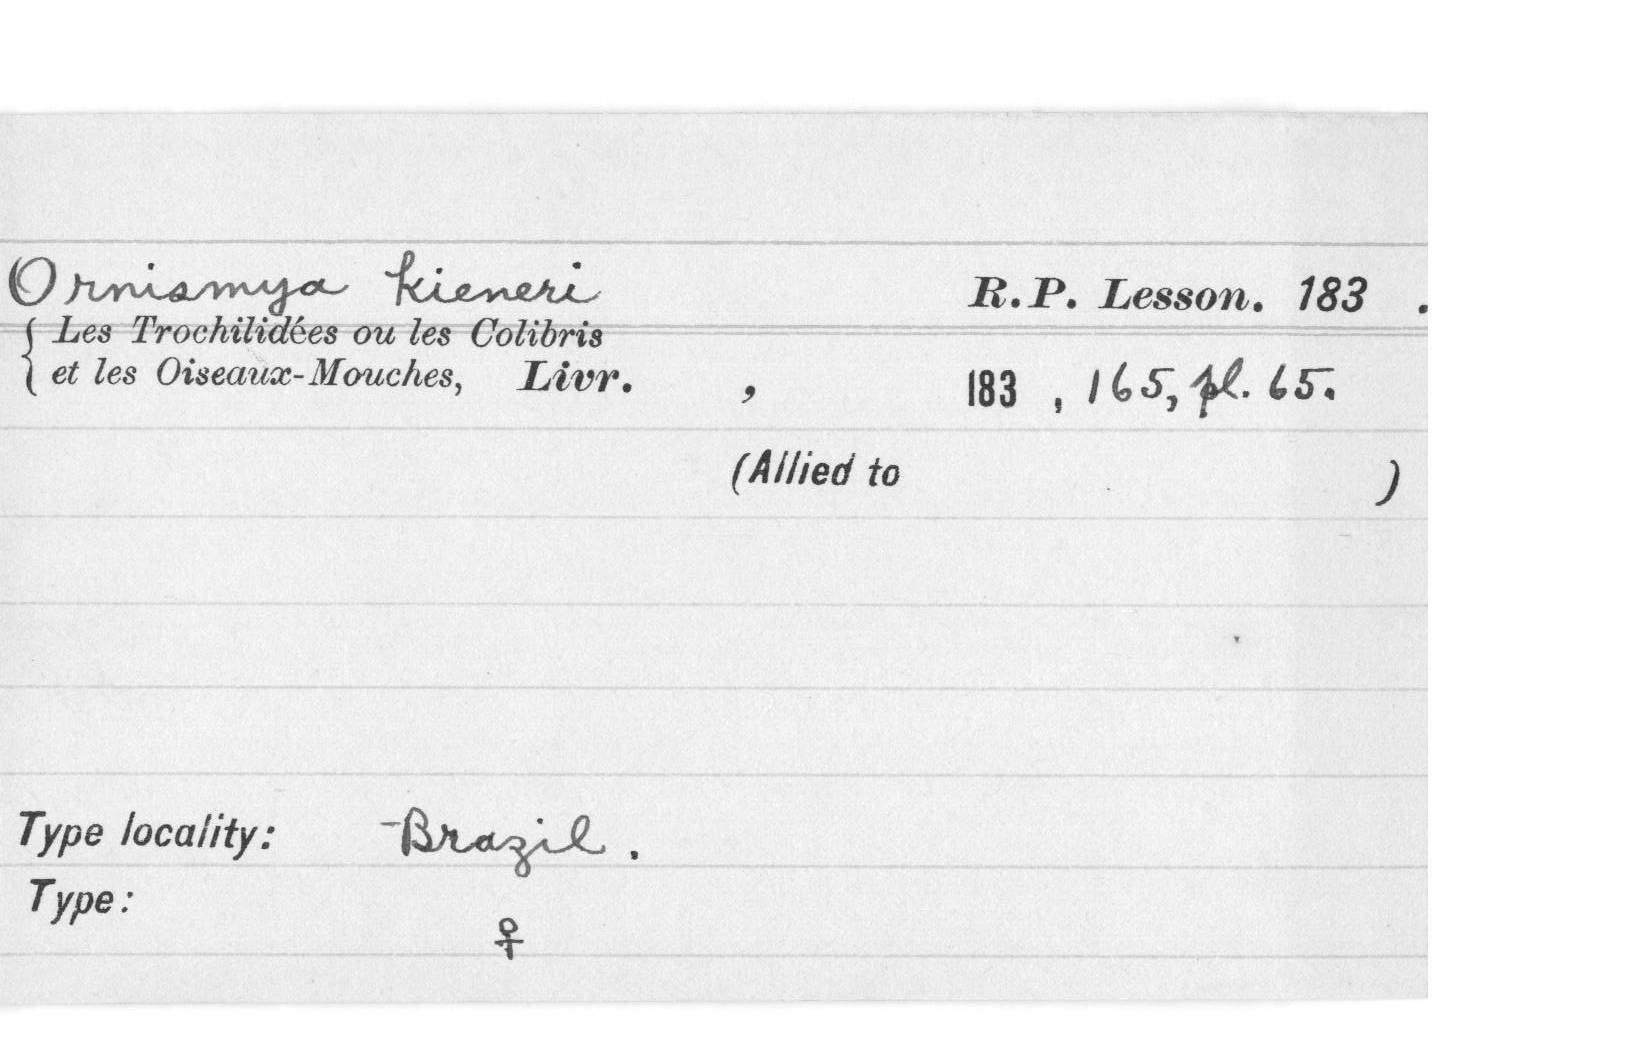 Ornismya kieneri R.P. Lesson. 183 .
{ Les Trochilidées ou les Colibris
et les Oiseaux-Mouches, Livr. , 183 , 165, pl. 65.
(Allied to )
Type locality: Brazil.
Type:
♀